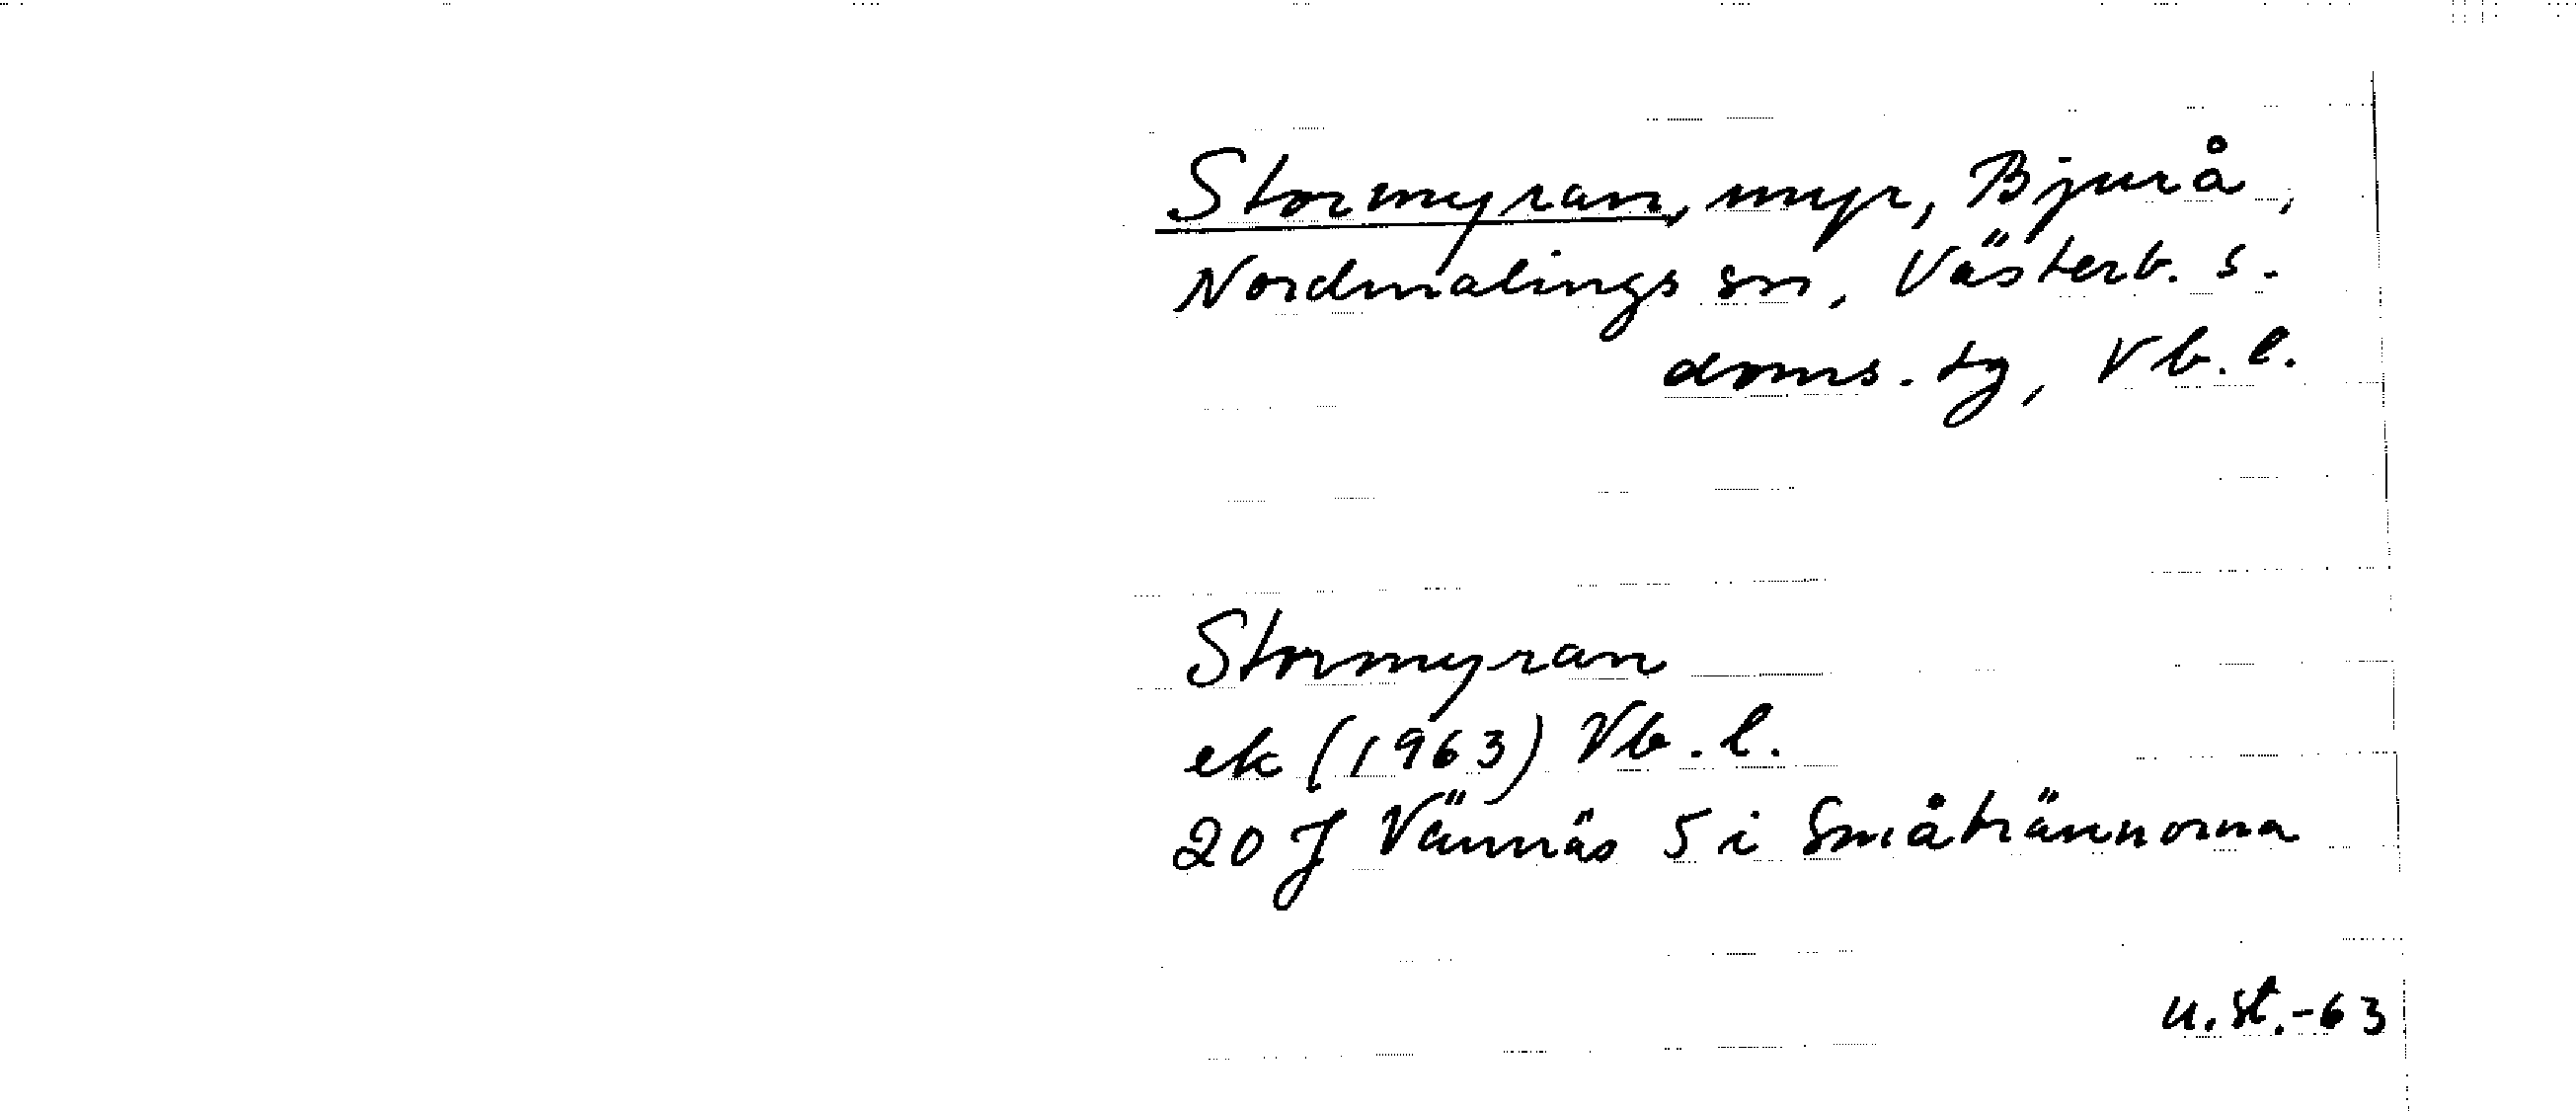 Stormyran, myr, Bjurå,
Nordmalings sn, Västerb. s.
doms. tg, Vb. l.
Stormyran
ek (1963) Vb. l.
20 J Vännäs 5 i Småtrännorna
u.st.-63